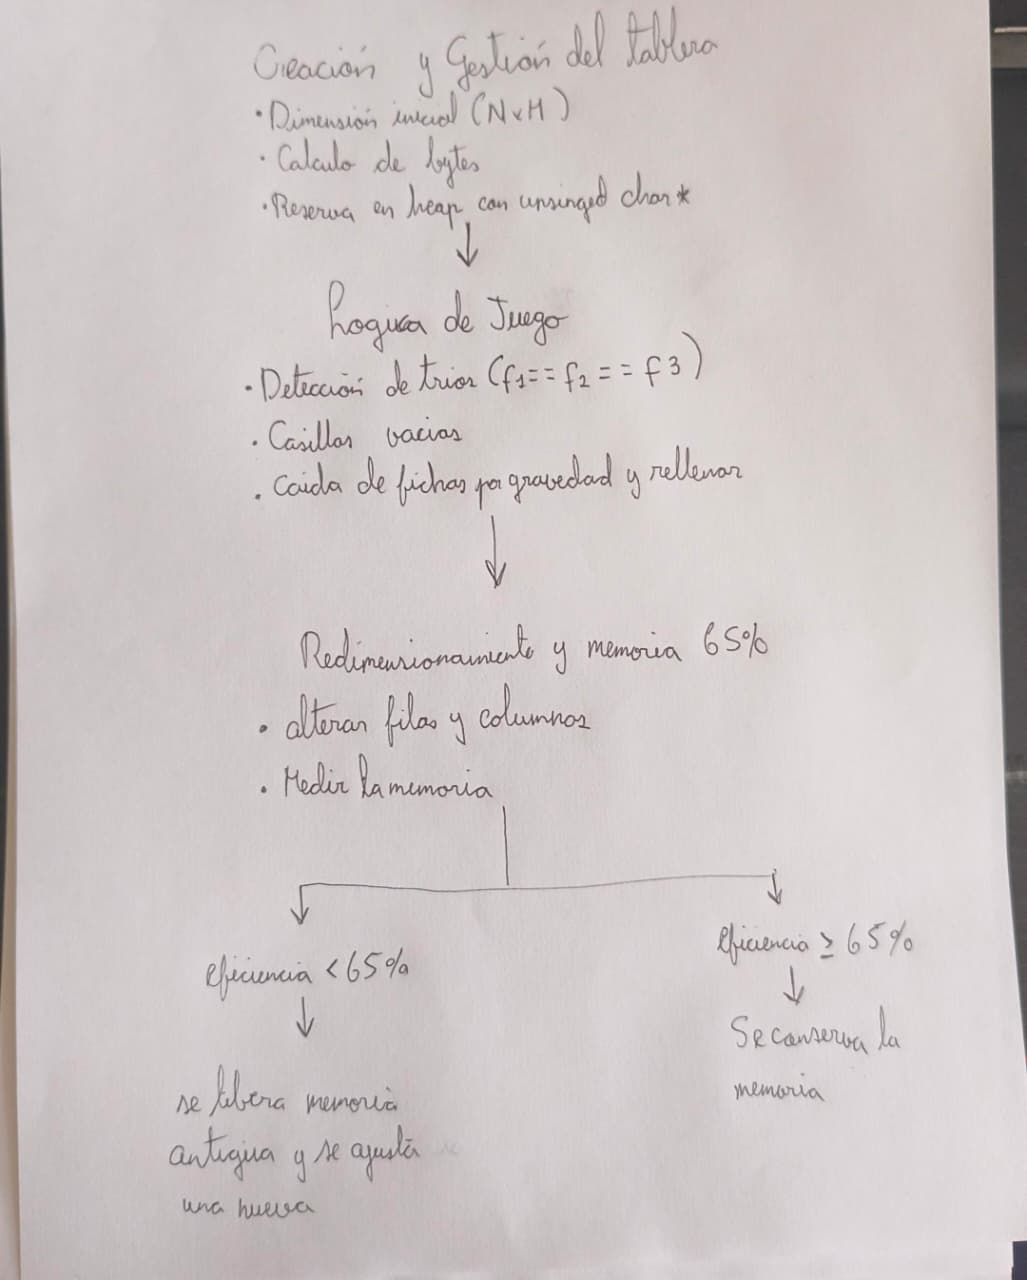 Creación y Gestión del tablero
• Dimensión inicial (NxM)
• Calculo de bytes
• Reserva en heap con unsinged char*
Logica de Juego
• Detección de trios (f1== f2 == f3)
• Casillas vacias
• Caida de fichas por gravedad y rellenar
Redimensionamiento y memoria 65%
• alterar filas y columnas
• Medir la memoria
eficiencia < 65%
eficiencia ≥ 65%
se libera memoria
antigua y se ajusta
una nueva
Se conserva la
memoria